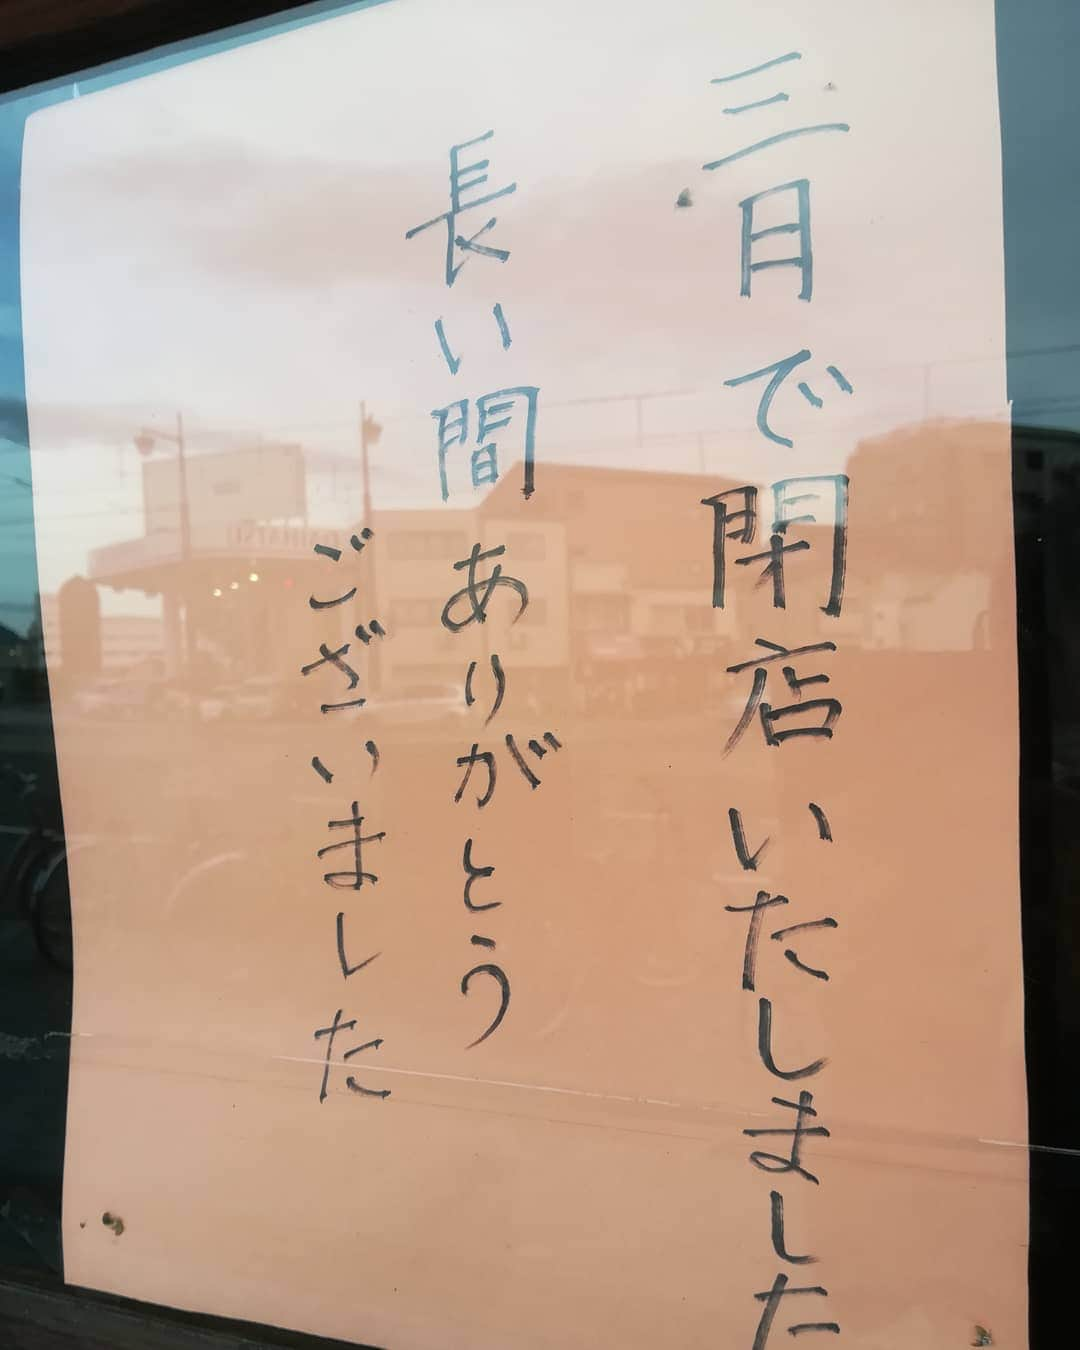 三月で閉店いたしました
長い間ありがとう
ございました